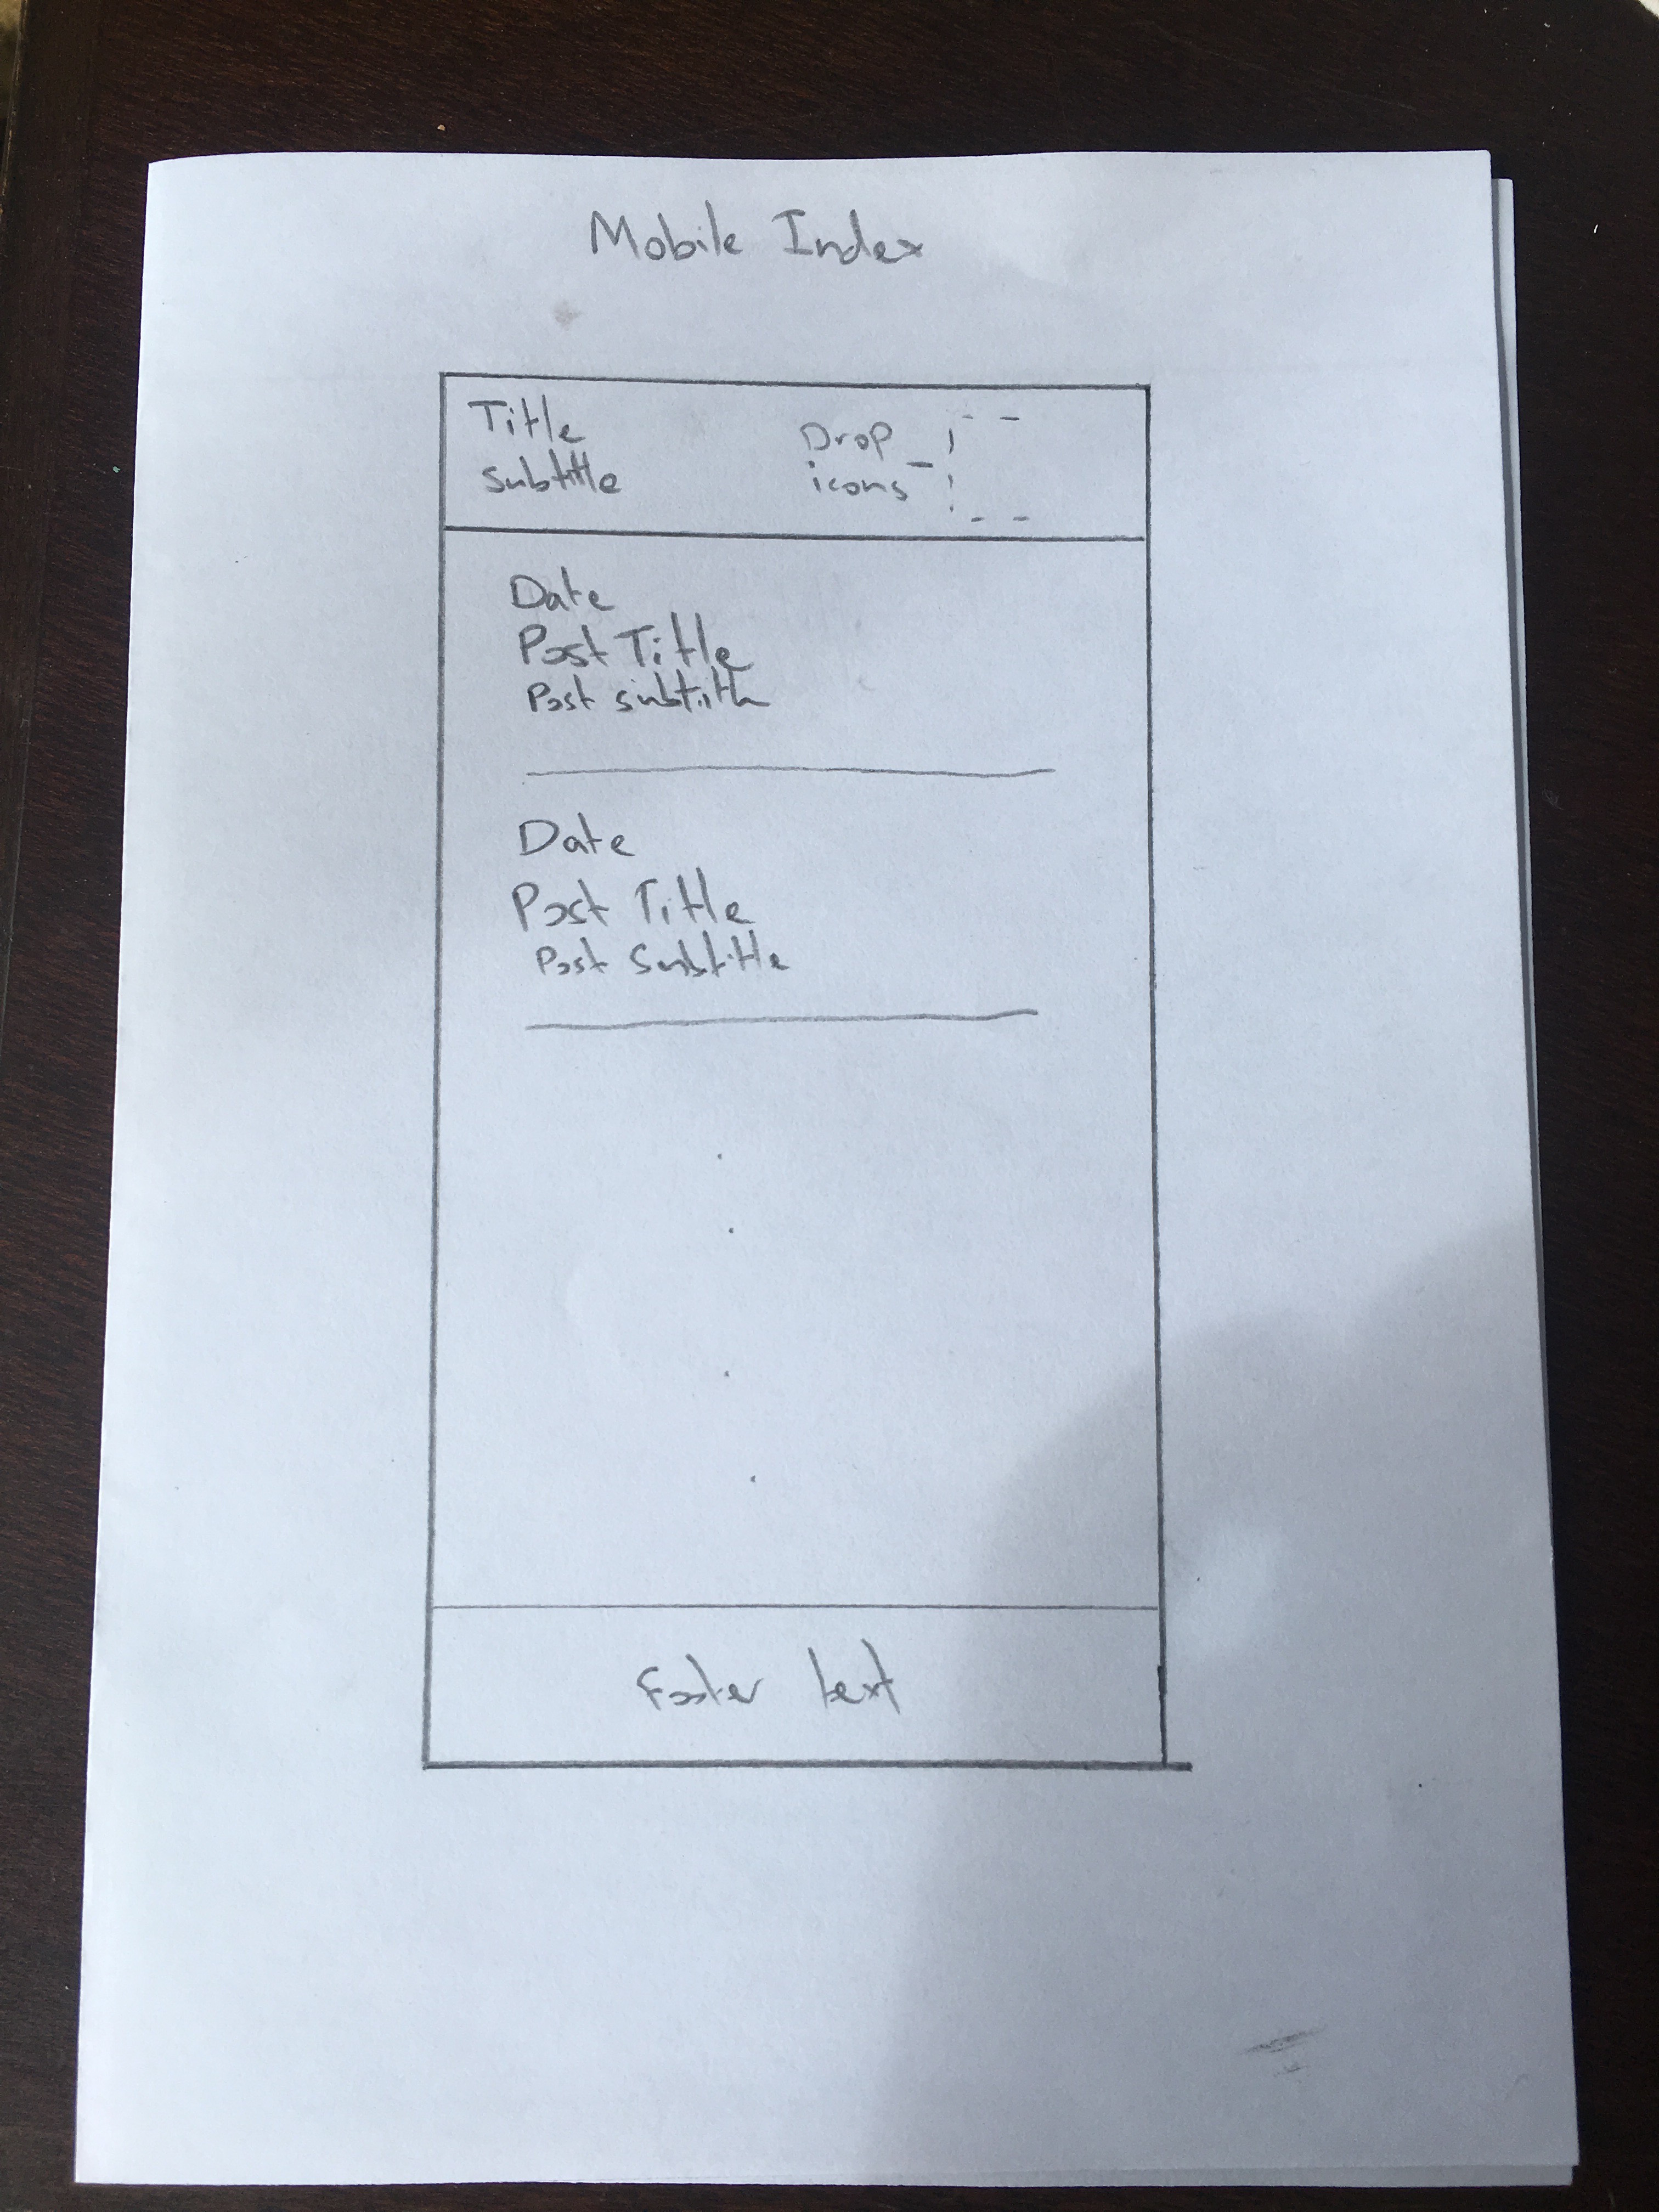 Mobile Index
Title
Subtitle
Drop
icons
Date
Post Title
Post subtitle
Date
Post Title
Post Subtitle
Footer text